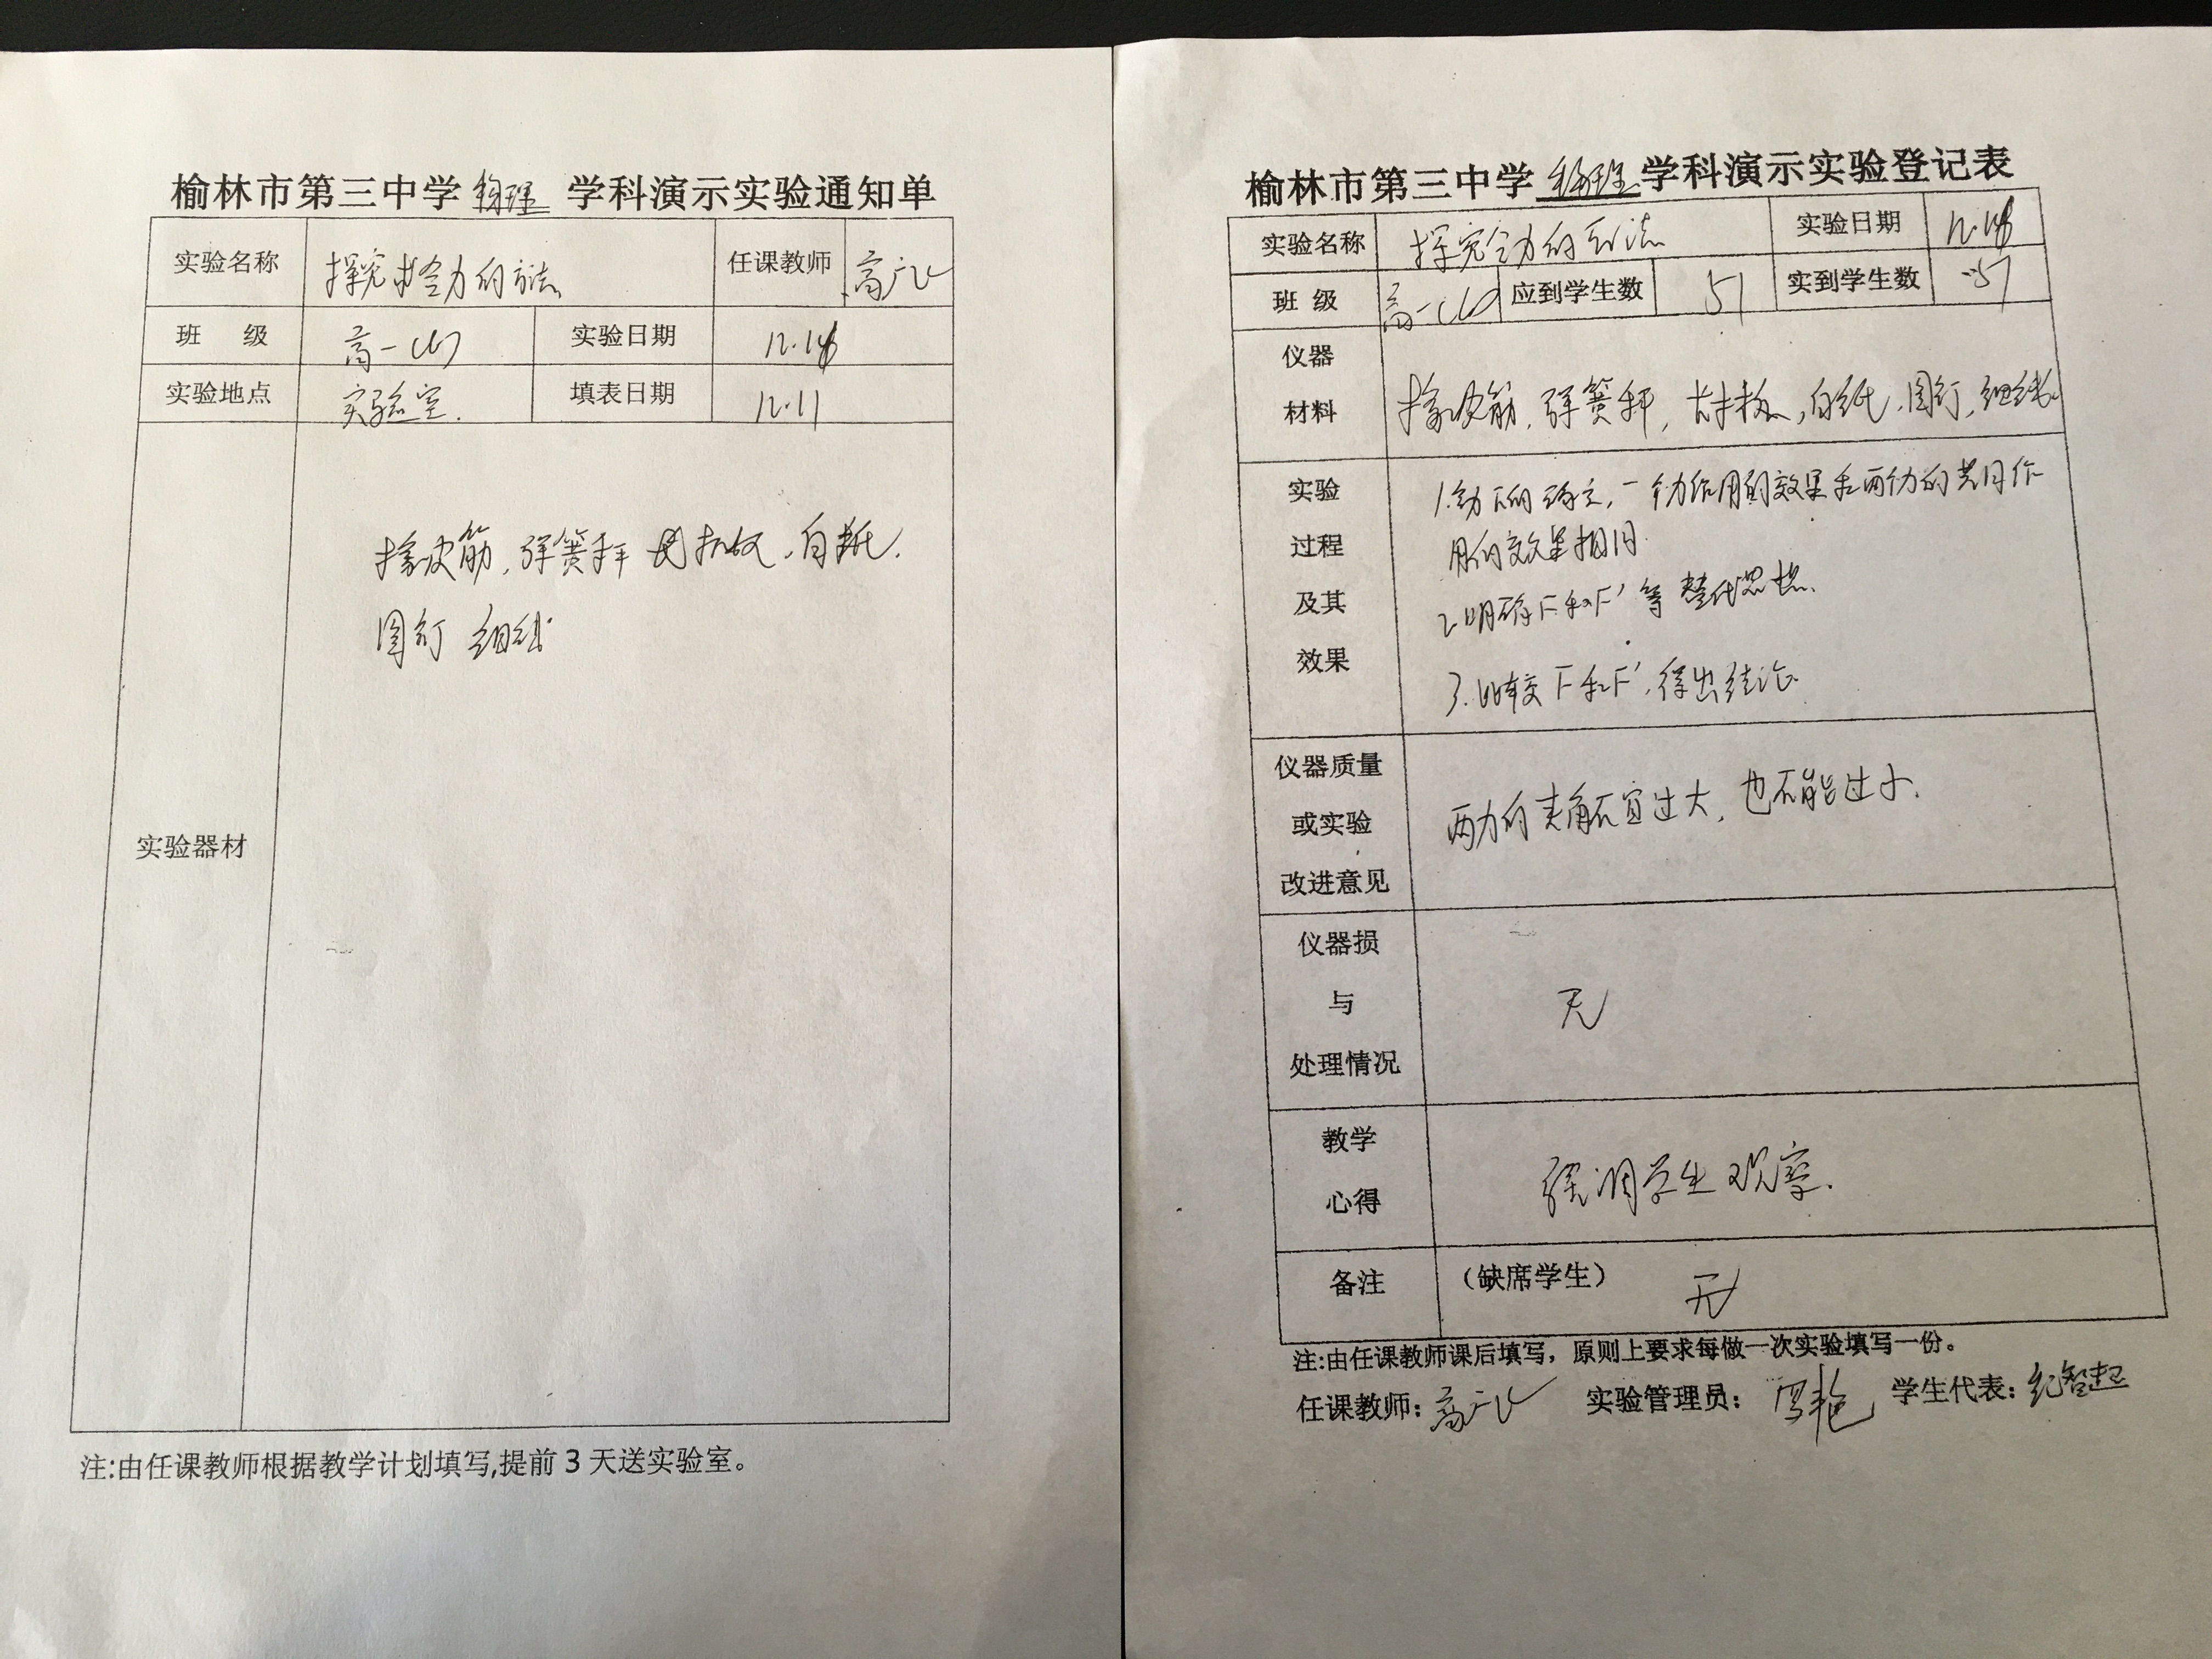 榆林市第三中学 物理 学科演示实验通知单
实验名称 探究求合力的方法 任课教师 高
班 级 高一 实验日期 12.1
实验地点 实验室. 填表日期 12.11
实验器材
橡皮筋, 弹簧秤 木板, 白纸.
图钉 细线
注:由任课教师根据教学计划填写,提前 3 天送实验室。
榆林市第三中学 物理 学科演示实验登记表
实验名称 探究合力的方法 实验日期 12.1
班 级 高一 应到学生数 51 实到学生数
仪器
材料
橡皮筋, 弹簧秤, 木板, 白纸, 图钉, 细线.
实验
过程
及其
效果
1. 一个力作用的效果和两个力的共同作
用的效果相同.
2.明确F和F'等 替代思想.
3.比较F和F',得出结论.
仪器质量
或实验
改进意见
两力的夹角不宜过大,也不能过小.
仪器损
与
处理情况
无
教学
心得
强调学生观察.
备注 （缺席学生） 无
注:由任课教师课后填写，原则上要求每做一次实验填写一份。
任课教师: 高 实验管理员: 学生代表: 纪智起